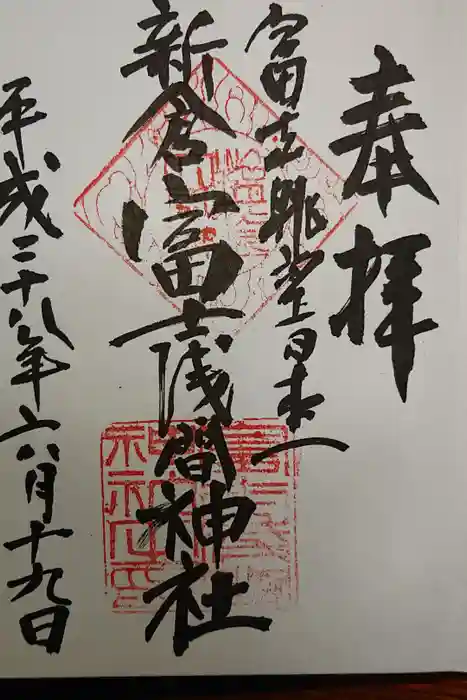 奉拝
富士眺望日本一
新倉富士浅間神社
平成二十八年六月十九日